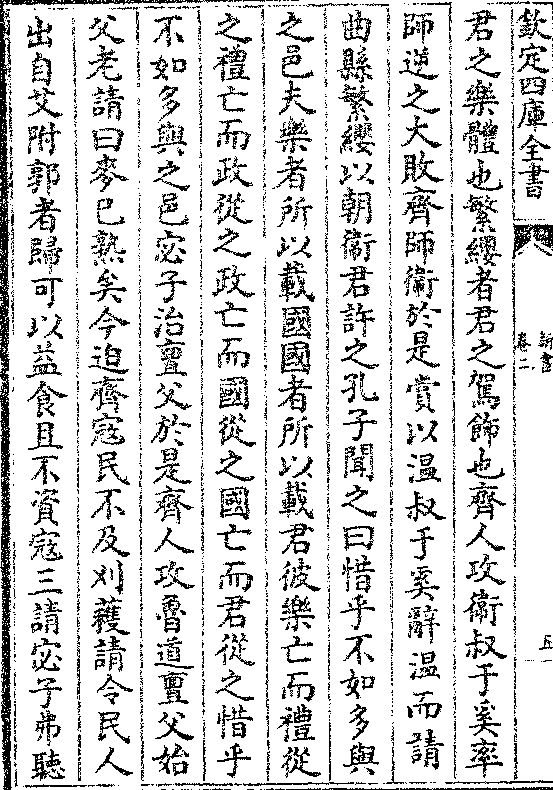 欽定四庫全書
新書
卷二
五
君之樂體也繁纓者君之駕飾也齊人攻衞叔于奚率
師逆之大敗齊師衞於是賞以温叔于奚辭温而請
曲縣繁纓以朝衞君許之孔子聞之曰惜乎不如多與
之邑夫樂者所以載國國者所以載君彼樂亡而禮從
之禮亡而政從之政亡而國從之國亡而君從之惜乎
不如多與之邑宓子治亶父於是齊人攻魯道亶父始
父老請曰麥已熟矣今迫齊寇民不及刈穫請令民人
出自艾附郭者歸可以益食且不資寇三請宓子弗聽